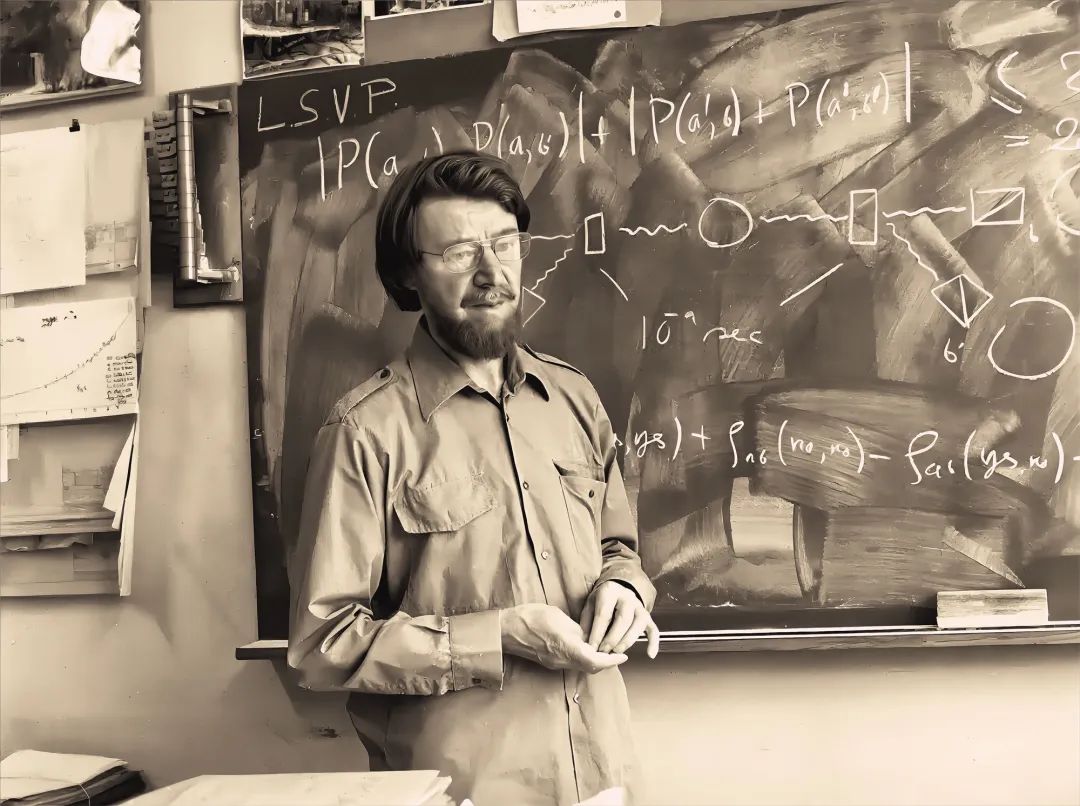 L.S.V.P.
|P(a P(a,b')| + |P(a',b) + P(a',b')| ≤ 2
= 2
b
10⁻⁹ sec
b'
s,yes) + ρab (no,no) - ρab (yes,no) -